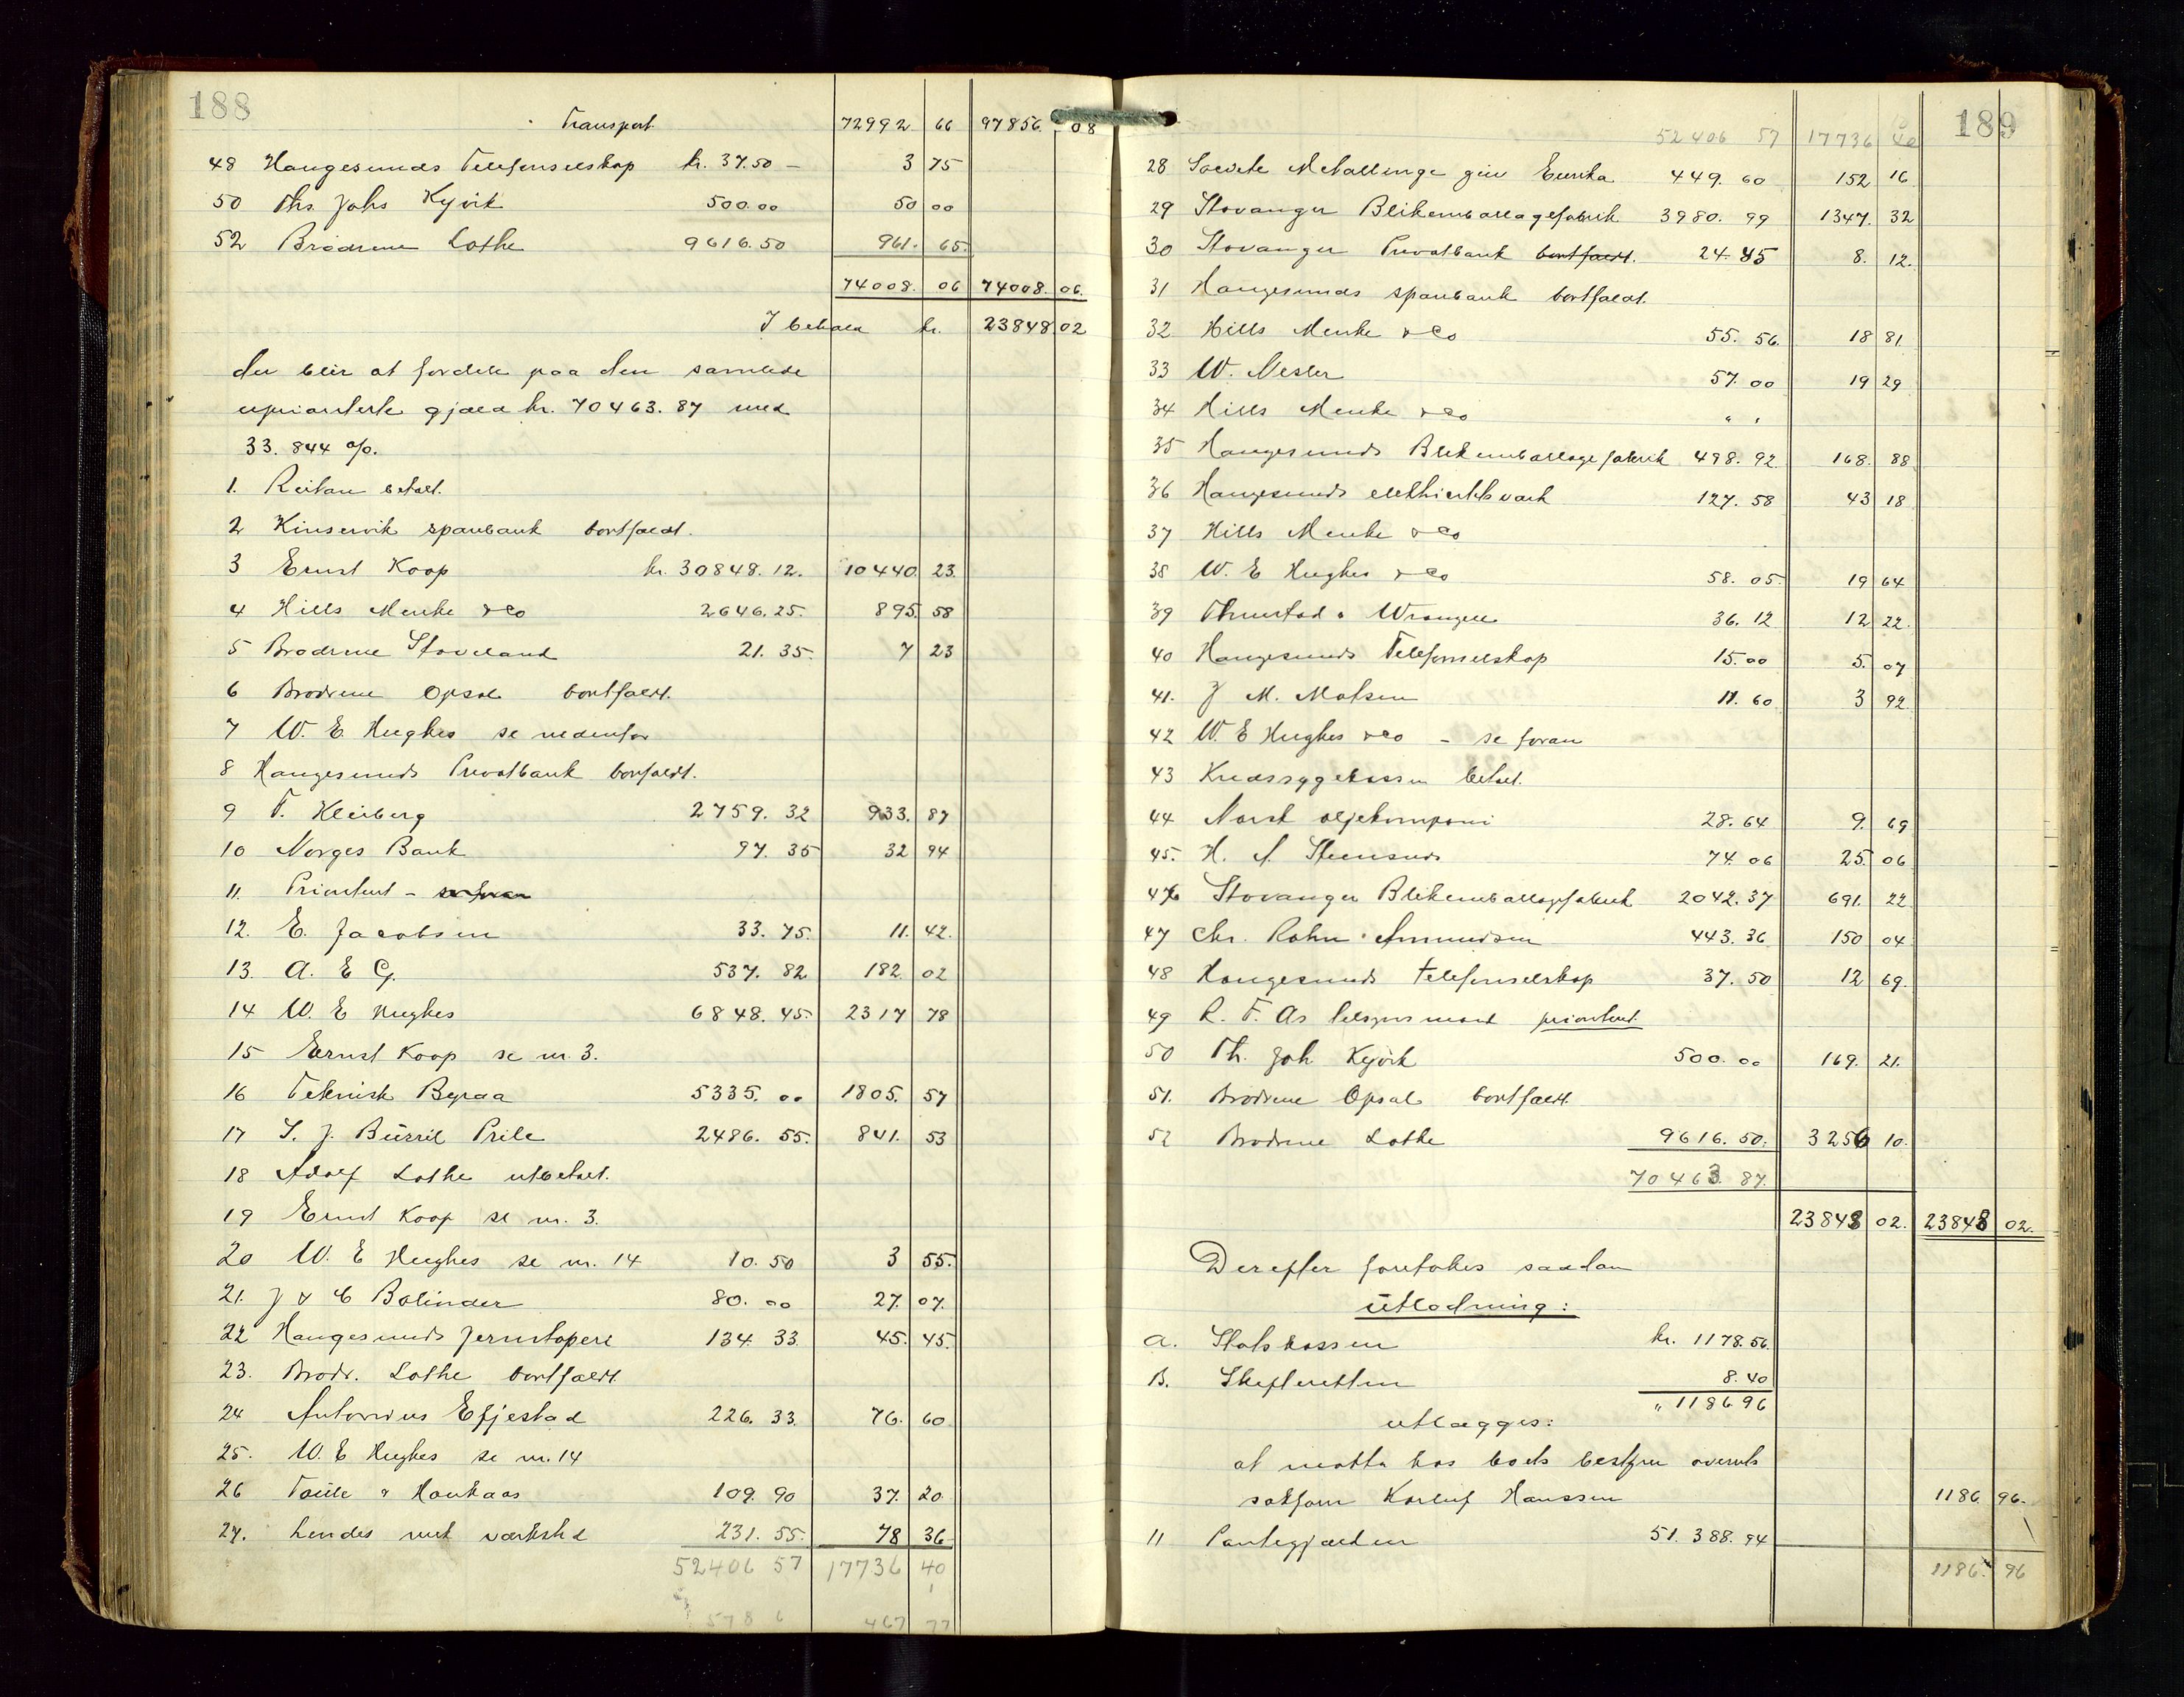 188
Transport. 72992. 66 97856. 08
48 Haugesunds Telefonselskap kr. 37.50 — 3 75
50 Ths. Johs Kyvik 500.00 50 00
52 Brødrene Lothe 9616.50 961. 65.
74008. 06 74008. 06.
I behold kr. 23848 02
der blir at fordele paa den samlede
uprioriterte gjæld kr. 70463.87 med
33.844 %.
1. Reitan betalt.
2 Kinservik sparebank bortfaldt.
3 Ernst Koop kr. 30848.12. 10440 23.
4 Hills Menke & Co 2646.25. 895. 58
5 Brødrene Stoveland 21.35. 7 23
6 Brødrene Opsal bortfaldt.
7 W. E. Hughes se nedenfor
8 Haugesunds Privatbank bortfaldt.
9 T. Kleiberg 2759.32 933. 87
10 Norges Bank 97.35 32 94
11. Prioritert –
12. E. Jacobsen 33.75. 11. 42.
13. A. E G. 537.82 182 02
14 W. E Hughes 6848.45. 2317 78
15 Ernst Koop se nr. 3.
16 Teknisk Byraa 5335.00 1805. 57
17 S. J. Burril Prile 2486.55. 841. 53
18 Adolf Lothe utbetalt.
19 Ernst Koop se nr. 3.
20 W. E Hughes se nr. 14 10.50 3 55.
21. J & C Bolinder 80.00 27. 07.
22 Haugesunds Jernstøperi 134.33. 45. 45.
23. Brødr. Lothe bortfaldt
24 Antonius Effjestad 226.33. 76. 60.
25. W. E Hughes se nr. 14
26 & Haukaas 109.90 37. 20
27. Lendes mek verksted 231.55. 78 36
52406 57 17736 40
578 6 467 77
189
52406 57 17736 40
28 Metallurgi Eureka 449.60 152 16
29 Stavanger Blikemballagefabrik 3980.99 1347. 32
30 Stavanger Privatbank bortfaldt. 24.85 8. 12.
31 Haugesunds sparebank bortfaldt.
32 Hills Menke & Co 55.56. 18 81.
33 W. Nesler 57.00 19 29
34 Hills Menke & Co " "
35 Haugesunds Blikemballagefabrik 498.92 168. 88
36 Haugesunds elektricitetsverk 127.58 43 18
37 Hills Menke & Co
38 W. E Hughes & Co 58.05. 19 64
39 Thunstad & Wrangell 36.12 12 22.
40 Haugesunds Telefonselskap 15.00 5. 07
41. J M. Matsen 11.60 3 92.
42 W. E Hughes & Co – se foran
43 Kredssygekassen betalt.
44 Norsk oljekompani 28.64 9. 69
45. H. A Steensnes 74.06 25. 06
46 Stavanger Blikemballagefabrik 2042.37 691. 22
47 Chr. Rohn Amundsen 443.36 150 04
48 Haugesunds telefonselskap 37.50 12 69.
49 R. F. As prioritert.
50 Th. Joh Kyvik 500.00 169. 21.
51. Brødrene Opsal bortfaldt.
52 Brødrene Lothe 9616.50. 3256 10.
70463.87.
23848 02. 23848 02.
Derefter foretokes saadan
utlodning:
A. Statskassen kr. 1178.56.
B. Skifteretten 8.40
" 1186.96
utlægges:
at motta hos boets bestyrer overrets
sakfører Karluf Hanssen 1186. 96.
11 Pantegjælden 51.388.94
1186. 96